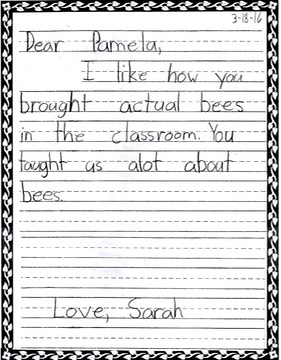 3-18-16
Dear Pamela,
I like how you
brought actual bees
in the classroom. You
taught us alot about
bees.
Love, Sarah